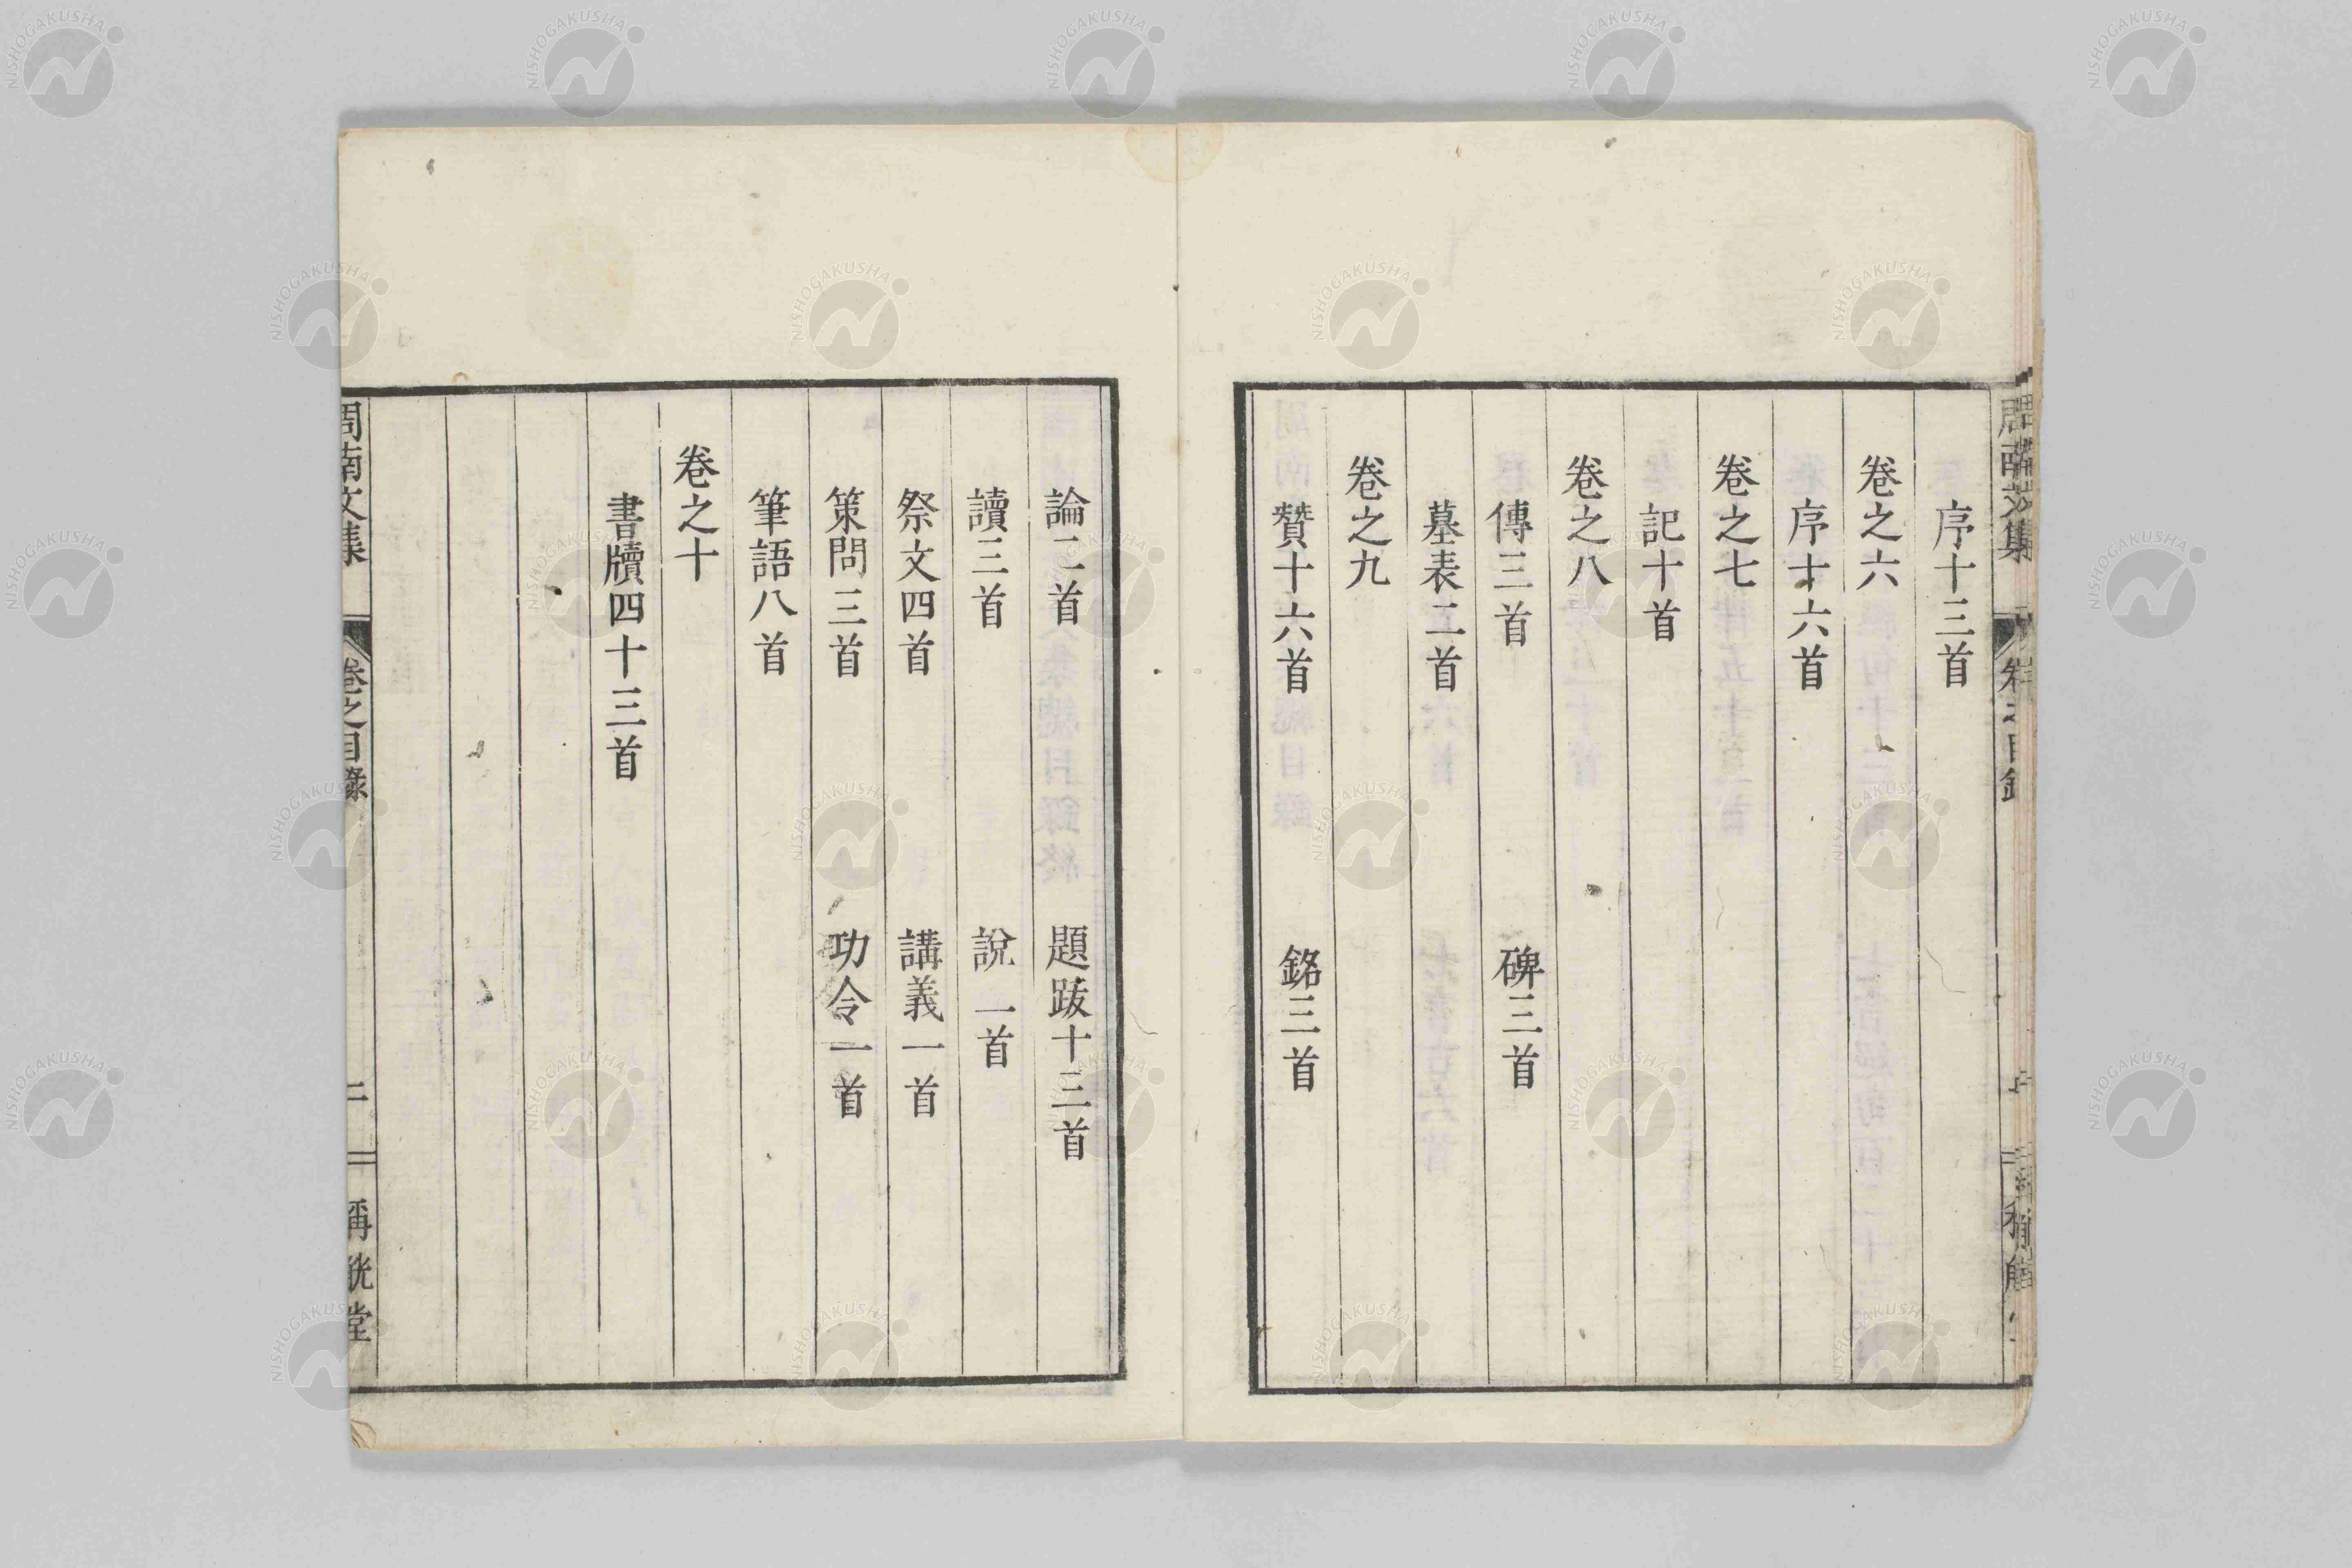 序十三首
卷之六
序十六首
卷之七
記十首
卷之八
傳三首 碑三首
墓表二首
卷之九
贊十六首 銘三首
論二首 題跋十三首
讀三首 說一首
祭文四首 講義一首
策問三首 功令一首
筆語八首
卷之十
書牘四十三首
周南文集 卷之目錄 二 稱觥堂
NISHOGAKUSHA